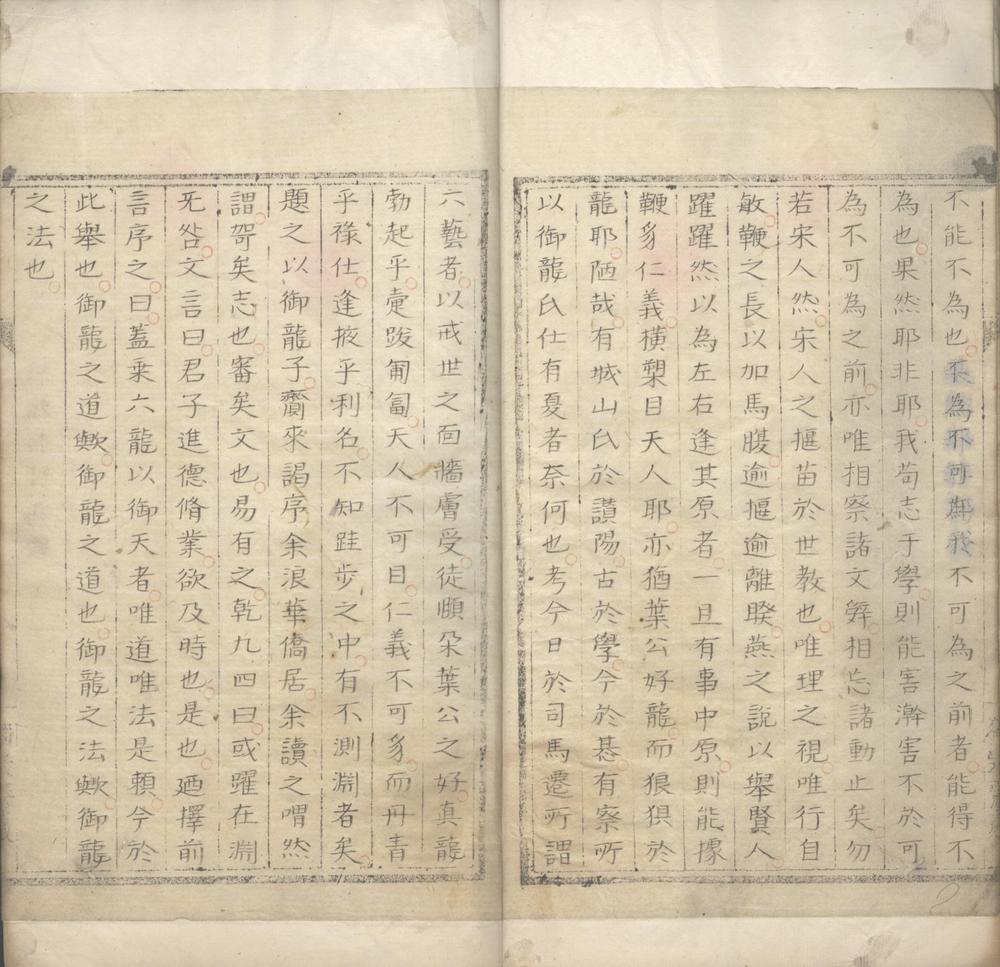 不能不為也不為不可為我不可為之前者能得不
為也果然耶非耶我苟志于學則能害澣害不於可
為不可為之前亦唯相察諸文辭相忘諸動止矣勿
若宋人然宋人之揠苗於世教也唯理之視唯行自
敏鞭之長以加馬腹逾揠逾離睽燕之說以舉賢人
躍躍然以為左右逢其原者一旦有事中原則能據
鞭豸仁義橫槊目天人耶亦猶葉公好龍而狼狽於
龍耶陋哉有城山氏於讃陽古於學今於碁有察所
以御龍氏仕有夏者奈何也考今日於司馬遷所謂
六藝者以戒世之面牆膚受徒頤朵葉公之好真龍
勃起乎疐跋匍匐天人不可目仁義不可豸而丹青
乎祿仕逢掖乎利名不知跬步之中有不測淵者矣
題之以御龍子齎來謁序余浪華僑居余讀之喟然
謂哿矣志也審矣文也易有之乾九四曰或躍在淵
无咎文言曰君子進德脩業欲及時也是也廼擇前
言序之曰蓋乘六龍以御天者唯道唯法是賴今於
此舉也御龍之道歟御龍之道也御龍之法歟御龍
之法也